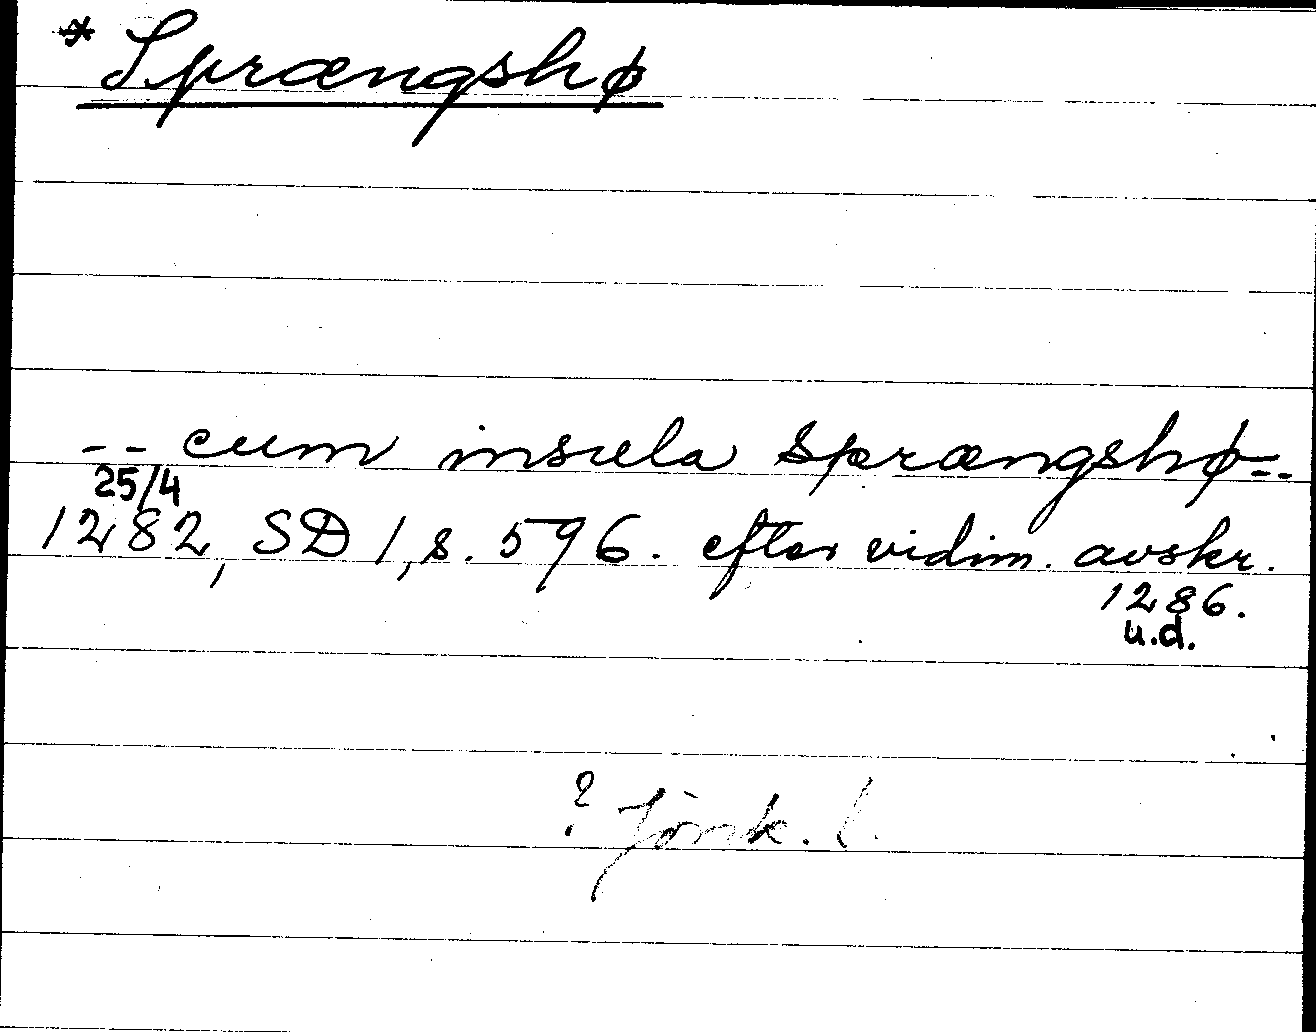 * Sprængshø
-- cum insula sprængshø --
25/4
1282, SD 1, s. 596. efter vidim. avskr.
1286.
u.d.
? Jönk. l.